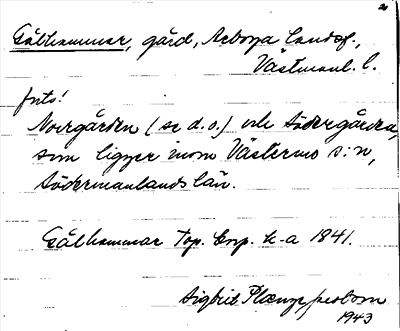 2
Gälhammar, gård, Arboga landsf.,
Västmanl. l.
förts!
Norrgården (se d.o.) och Södergården,
som ligger inom Västermo s:n,
Södermanlands län.
Gälhammar Top. Corp. k-a 1841.
Sigbrit Plænge
1943